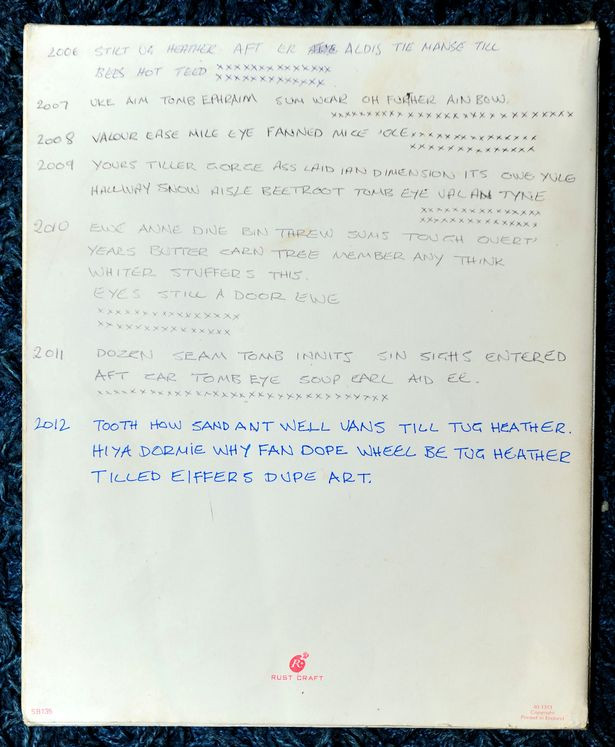 2006 STILT UG HEATHER AFT ER ALDIS TIE MANSE TILL
BEDS HOT TEED xxxxxxxxxxxxxxx
xxxxxxxxxxxxxxx
2007 UKE AIM TOMB EPHRAIM SUM WEAR OH FURHER AIN BOW.
xxxxxxxxxxxxxxxxxxxxxxxxxxxxx
2008 VALOUR EASE MILE EYE FANNED MICE 'OLE xxxxxxxxxxxxxxx
xxxxxxxxxxxxxxx
2009 YOURS TILLER GORGE ASS LAID IAN DIMENSION ITS OWE YULE
HALLWAY SNOW AISLE BEETROOT TOMB EYE VAL AN TYNE
xxxxxxxxxxxxxxx
xxxxxxxxxxxxxxx
2010 EWE ANNE DINE BIN THREW SUMS TOUGH OVERT'
YEARS BUTTER EARN TREE MEMBER ANY THINK
WHITER STUFFERS THIS.
EYES STILL A DOOR EWE
xxxxxxxxxxxxxxxxx
xxxxxxxxxxxxxxxx
2011 DOZEN SEAM TOMB INNITS SIN SIGHS ENTERED
AFT EAR TOMB EYE SOUP EARL AID EE.
xxxxxxxxxxxxxxxxxxxxxxxxxxxxxxxxxx
2012 TOOTH HOW SAND ANT WELL VANS TILL TUG HEATHER.
HIYA DORMIE WHY FAN DOPE WHEEL BE TUG HEATHER
TILLED EIFFERS DUPE ART.
R
RUST CRAFT
Copyright
Printed in England